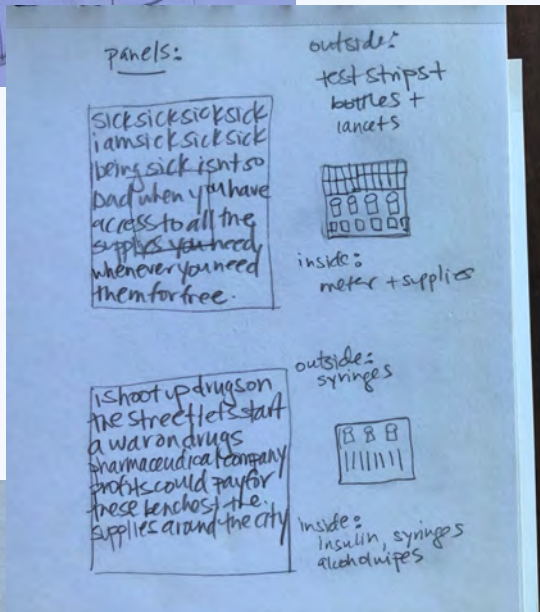 panels:
sicksicksicksick
iamsicksicksick
beingsickisntso
badwhenyouhave
accesstoallthe
suppliesyouneed
wheneveryouneed
themforfree.
outside:
test strips +
bottles +
lancets
inside:
meter + supplies
ishootupdrugson
thestreetletsstart
awarondrugs
pharmaceudicalcompany
profitscouldpayfor
thesebenches+the
suppliesaroundthecity
outside:
syringes
inside:
insulin, syringes
alcoholwipes